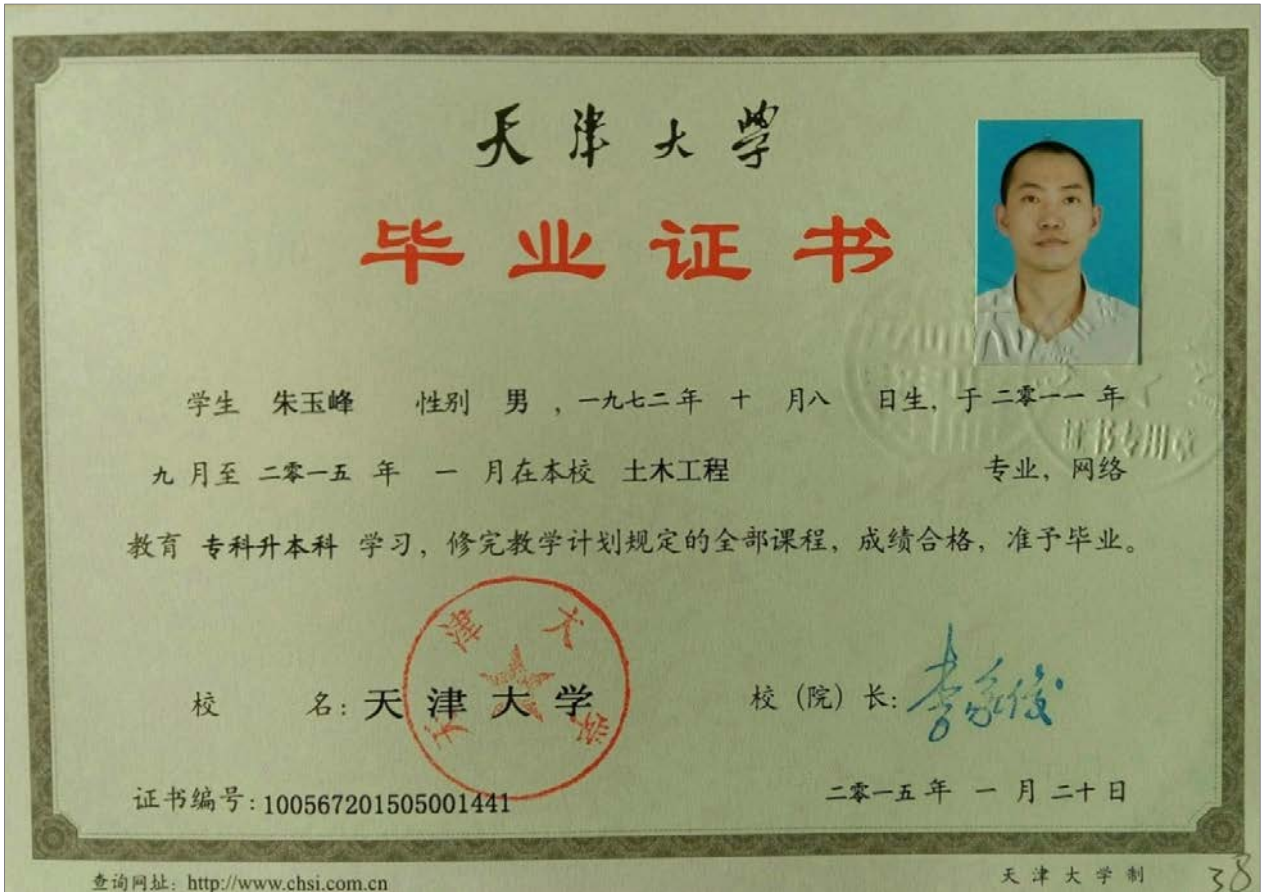 天津大学
毕业证书
学生 朱玉峰 性别 男 ，一九七二年 十 月八 日生，于二零一一年
九 月至 二零一五 年 一 月在本校 土木工程 专业，网络
教育 专科升本科 学习，修完教学计划规定的全部课程，成绩合格，准予毕业。
校 名：天津大学
校（院）长：李家俊
天津大学
证书专用章
证书编号：100567201505001441
二零一五年 一 月 二十 日
查询网址：http://www.chsi.com.cn
天津大学制
38